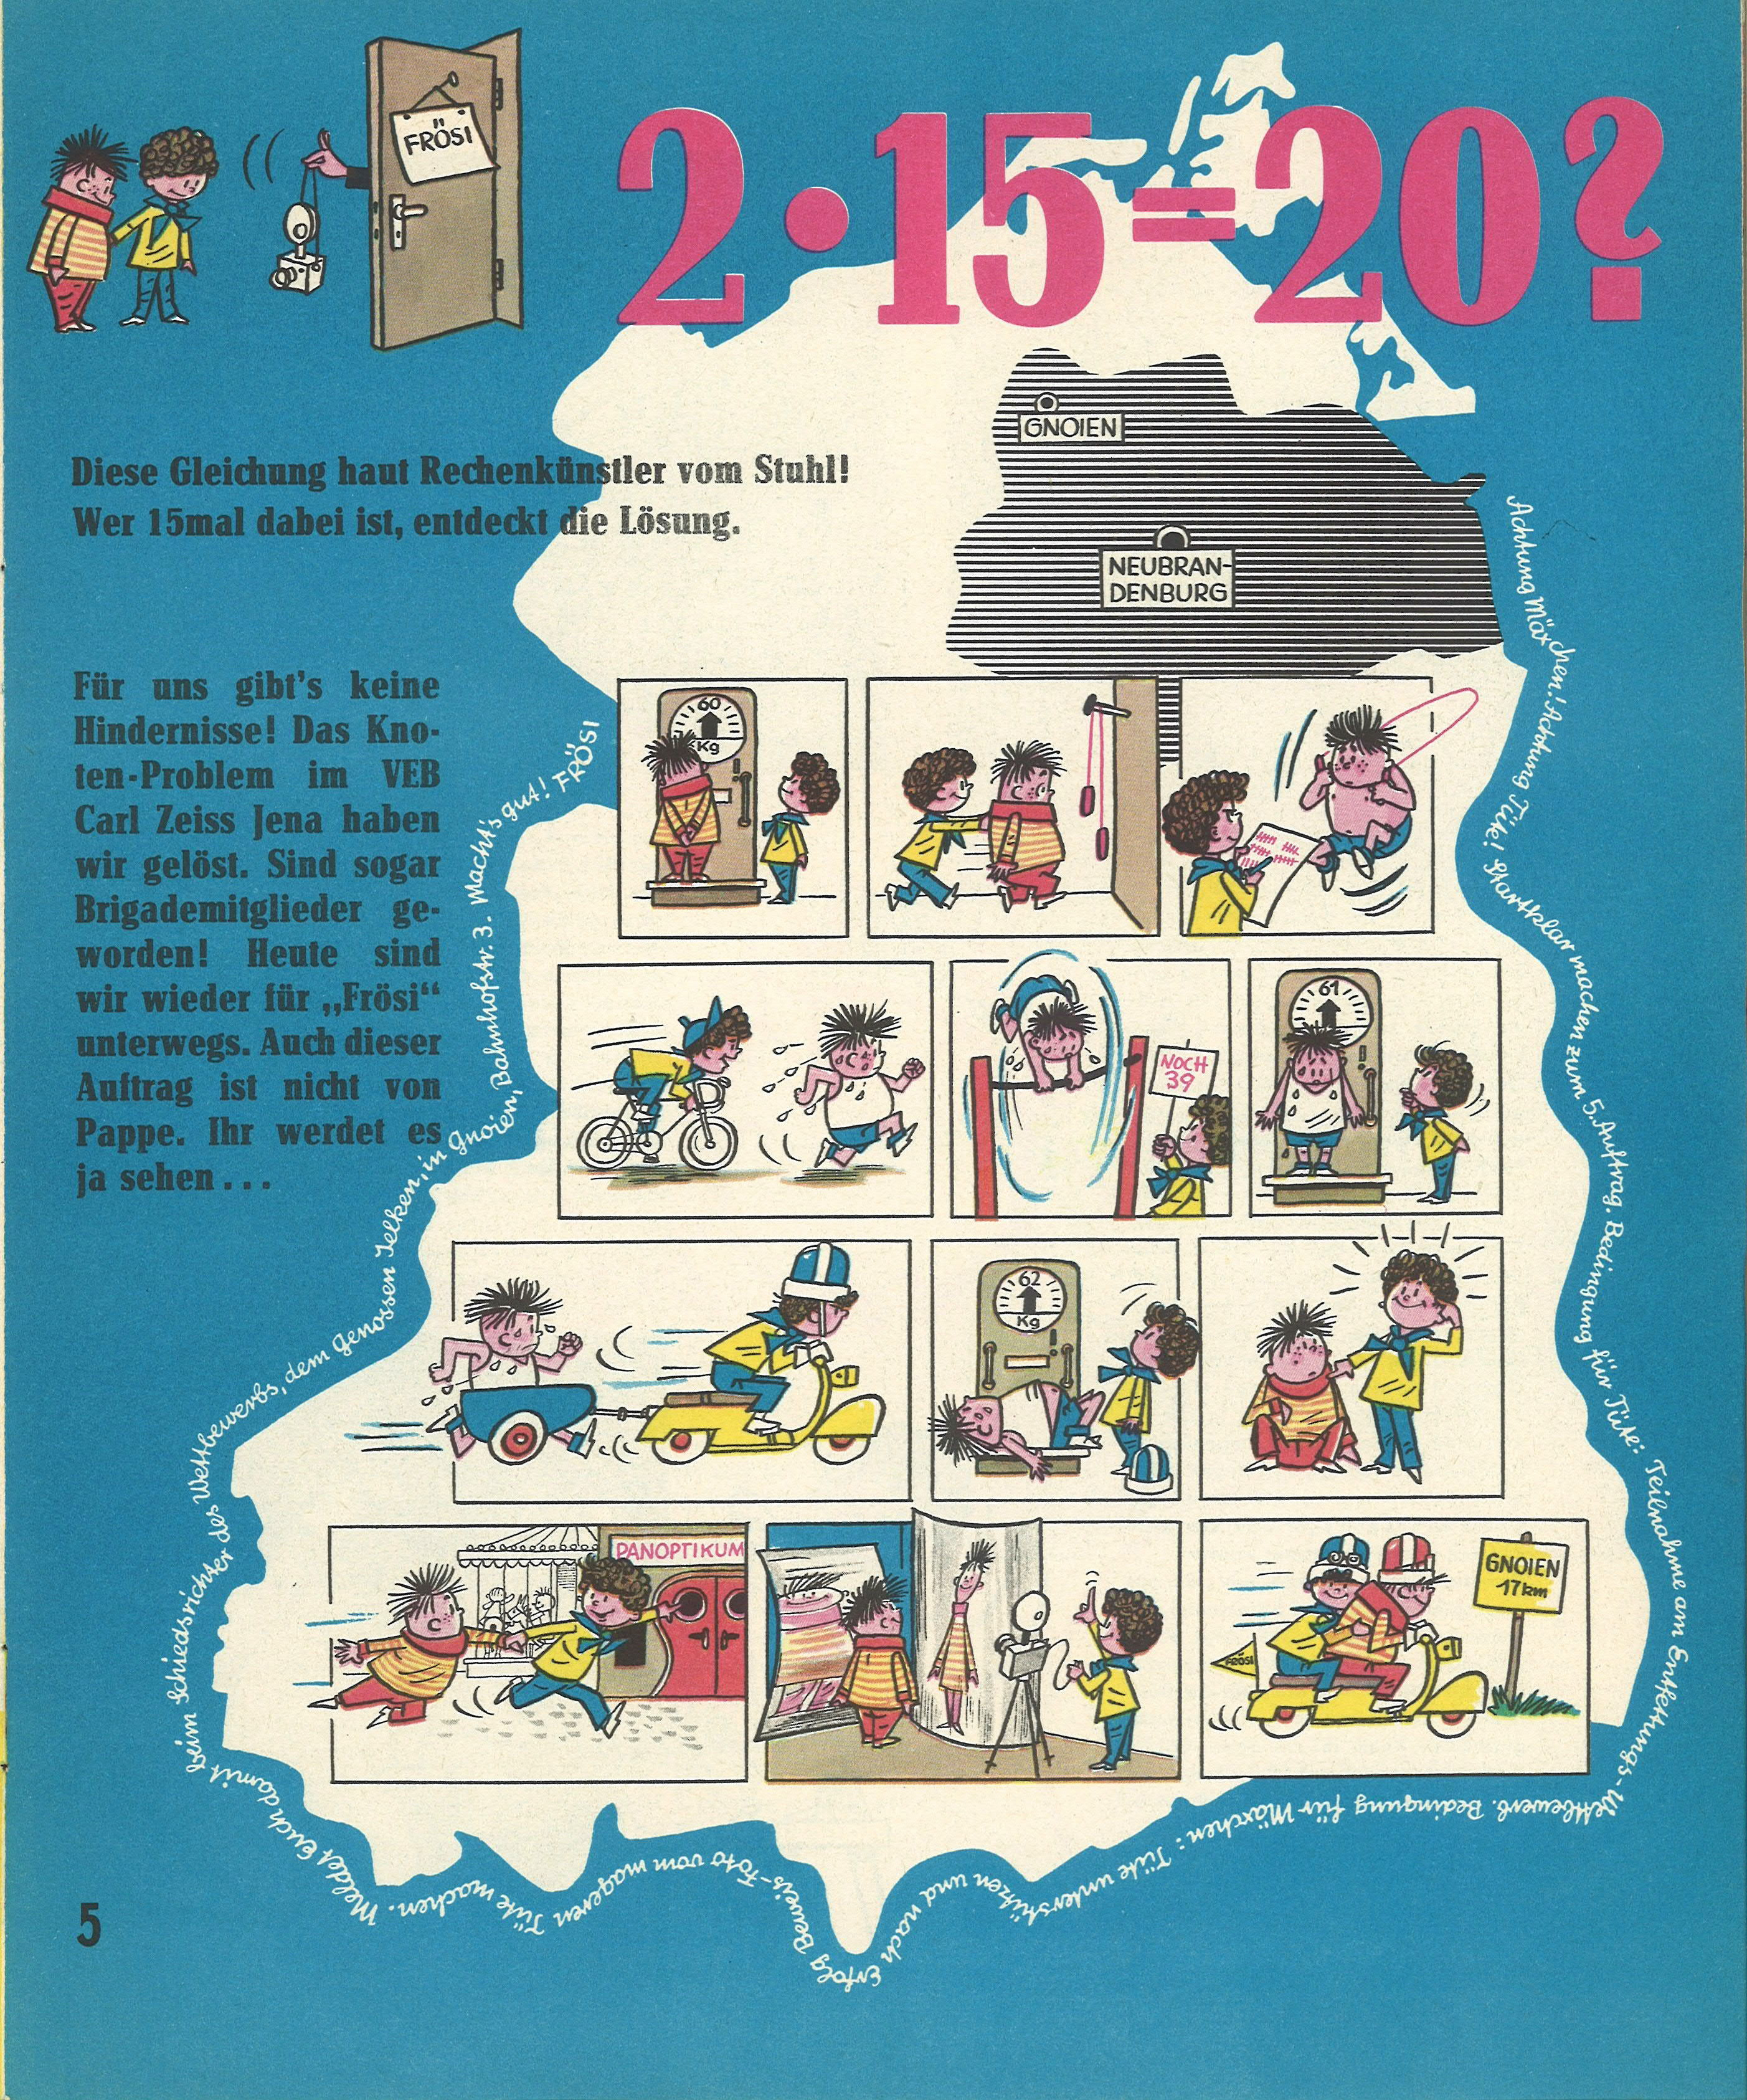 FRÖSI
2·15=20?
Diese Gleichung haut Rechenkünstler vom Stuhl!
Wer 15mal dabei ist, entdeckt die Lösung.
GNOIEN
NEUBRAN-
DENBURG
Für uns gibt's keine
Hindernisse! Das Kno-
ten-Problem im VEB
Carl Zeiss Jena haben
wir gelöst. Sind sogar
Brigademitglieder ge-
worden! Heute sind
wir wieder für „Frösi“
unterwegs. Auch dieser
Auftrag ist nicht von
Pappe. Ihr werdet es
ja sehen...
Achtung Mäxchen! Achtung Tüte! Startklar machen zum 5. Auftrag. Bedingung für Tüte: Teilnahme am Entfettungs-Wettbewerb. Bedingung für Mäxchen: Tüte unterstützen und nach Erfolg Beweis-Foto vom mageren Tüte machen. Meldet Euch damit beim Schiedsrichter des Wettbewerbs, dem Genossen Jelken, in Gnoien, Bahnhofstr. 3. Macht's gut! FRÖSI
60
Kg
NOCH
39
61
62
Kg
PANOPTIKUM
GNOIEN
17km
FRÖSI
5